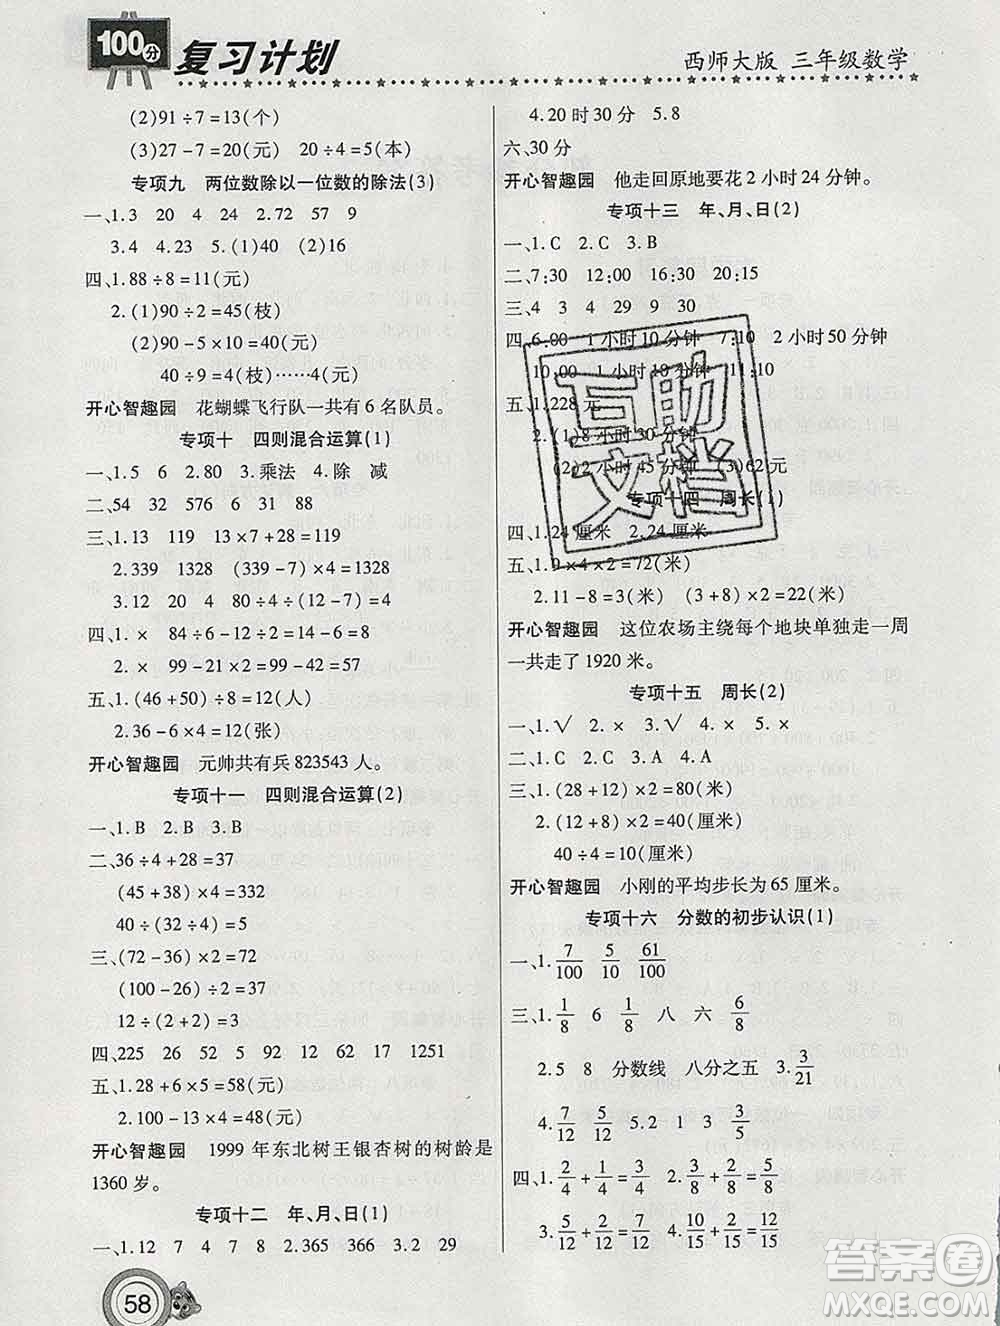 100分
复习计划
西师大版 三年级数学
(2)91÷7=13(个)
(3)27-7=20(元) 20÷4=5(本)
专项九 两位数除以一位数的除法(3)
一、1.3 20 4 24 2.72 57 9
3.4 4.23 5.(1)40 (2)10
四、1.88÷8=11(元)
2.(1)90÷2=45(枝)
(2)90-5×10=40(元)
40÷9=4(枝)……4(元)
开心智趣园 花蝴蝶飞行队一共有6名队员。
专项十 四则混合运算(1)
一、1.5 6 2.80 3.乘法 4.除 减
二、54 32 576 6 31 88
三、1.13 91 119 13×7+28=119
2.339 1328 (339-7)×4=1328
3.12 20 4 80÷4÷(12+8)=4
四、1.× 84÷6-12÷2=14-6=8
2.× 99-21×2=99-42=57
五、1.(46+50)÷8=12(人)
2.36-6×4=12(张)
开心智趣园 元帅共有兵823543人。
专项十一 四则混合运算(2)
一、1.B 2.B 3.B
二、36÷4+28=37
(45+38)×4=332
40÷(32÷4)=5
三、(72-36)×2=72
(100-26)÷2=37
12÷(2+2)=3
四、225 26 52 92 62 17 1251
五、1.28+6×5=58(元)
2.100-13×4=48(元)
开心智趣园 1999年东北树王银杏树的树龄是
1360岁。
专项十二 年、月、日(1)
一、1.12 7 4 7 8 2.365 366 3.2 29
58
4.20时30分 5.8
六、30分
开心智趣园 他走回原地要花2小时24分钟。
专项十三 年、月、日(2)
一、1.C 2.C 3.B
二、7:30 12:00 18:30 20:15
三、3 4 4 29 9 30
四、6:00 1小时10分钟 7:10 2小时50分钟
10:00 1小时10分钟 11:10
五、1.228元
2.(1)8小时30分钟
(2)2小时45分钟 (3)62元
互助文档
专项十四 周长(1)
四、1.24厘米 2.24厘米
五、1.9×4×2=72(米)
2.11-8=3(米) (3+8)×2=22(米)
开心智趣园 这位农场主绕每个地块单独走一周
一共走了1920米。
专项十五 周长(2)
一、1.√ 2.× 3.√ 4.× 5.×
二、1.C 2.C 3.A 4.A
三、1.(28+12)×2=80(厘米)
2.(12+8)×2=40(厘米)
40÷4=10(厘米)
开心智趣园 小刚的平均步长为65厘米。
专项十六 分数的初步认识(1)
一、1.7/100 5/10 61/100
三、1.1/8 6 1/8 八 六 6/8
2.5 8 分数线 八分之五 3.3/21
4.7/12 5/12 5.2 1 3 5/8
四、1.2/4+1/4=3/4 2.4/8+3/8=7/8
3.5/12+2/12=7/12 4.4/12+3/12=7/12
答案圈
MXQE.COM